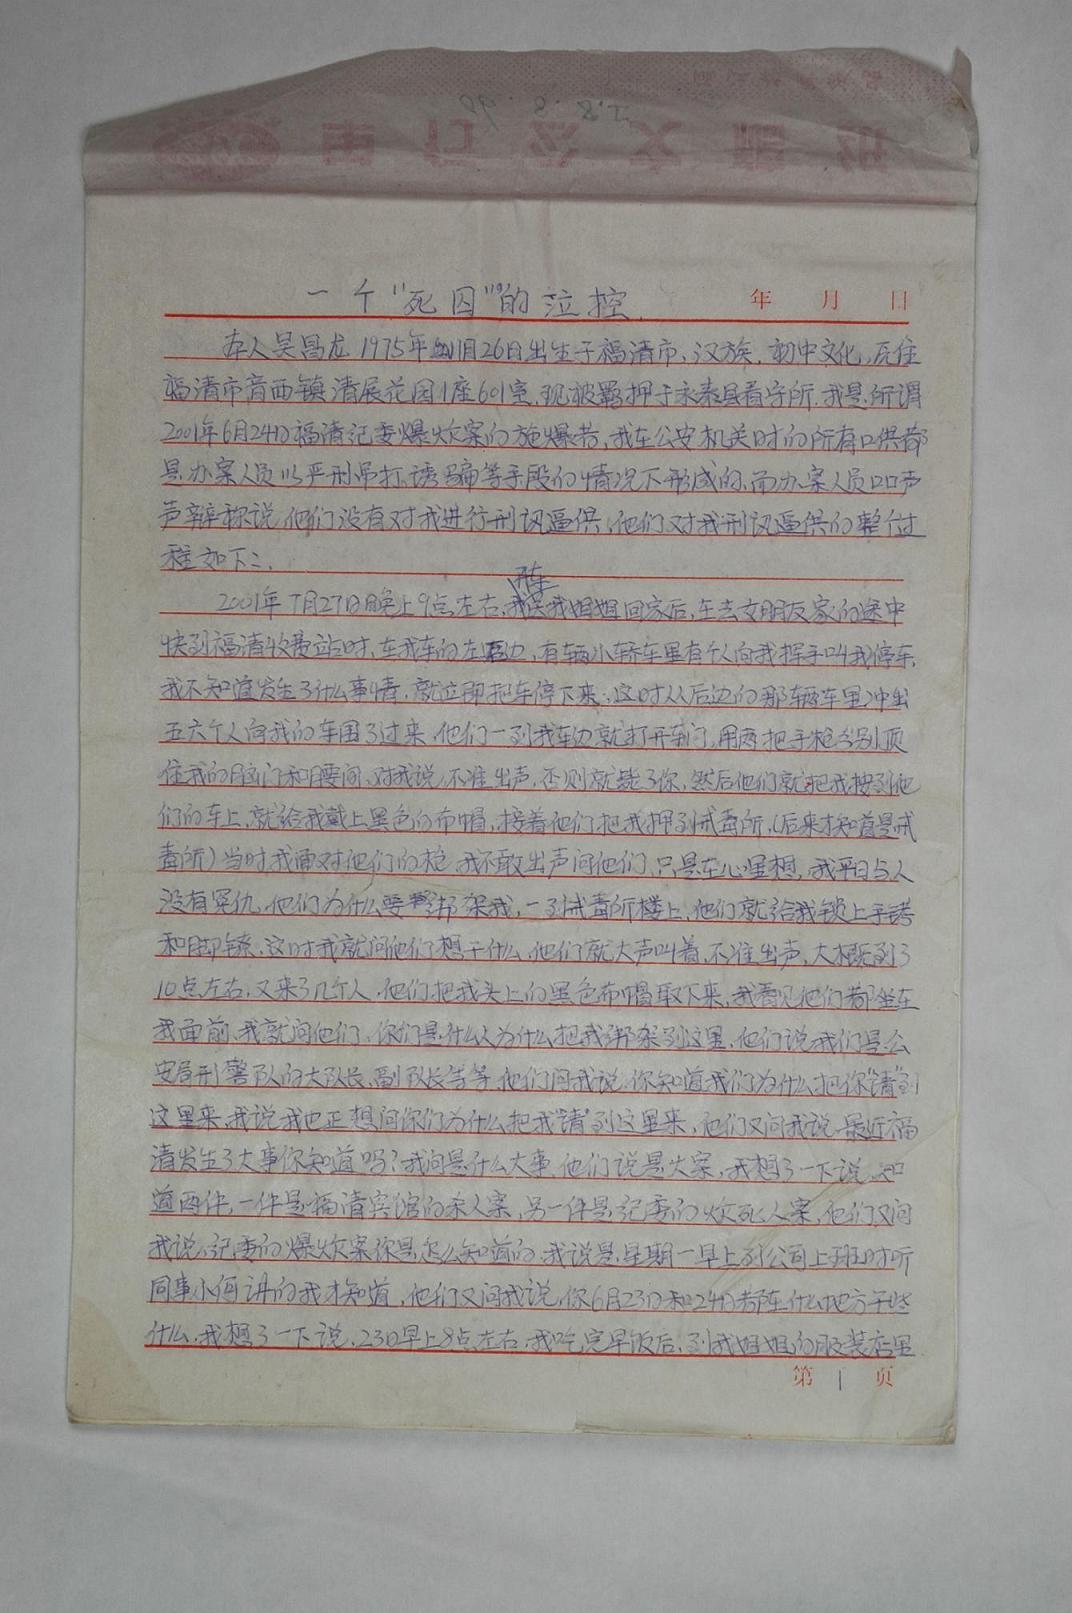 一个“死囚”的泣控
年 月 日
本人吴昌龙 1975年11月26日出生于福清市、汉族，初中文化，瓦住
福清市音西镇清展花园1座601室，现被羁押于永泰县看守所，我是所谓
2001年6月24日福清纪委爆炸案的施爆者，我在公安机关时的所有口供都
是办案人员以严刑吊打、诱骗等手段的情况下形成的，而办案人员口口声
声辩称说，他们没有对我进行刑讯逼供，他们对我刑讯逼供的整个过
程如下：
2001年7月27日晚上9点左右，我开车送我姐姐回家后，在去女朋友家的途中
快到福清收费站时，在我车的左边，有辆小轿车里有个人向我挥手叫我停车，
我不知道发生了什么事情，就立即把车停下来，这时从后边的那辆车里冲出
五六个人向我的车围了过来，他们一到我车边就打开车门，用两把手枪分别顶
住我的脑门和腰间，对我说，不准出声，否则就毙了你，然后他们就把我按到他
们的车上，就给我戴上黑色的布帽，接着他们把我押到戒毒所，（后来才知道是戒
毒所）当时我面对他们的枪，我不敢出声问他们，只是在心里想，我平日与人
没有冤仇，他们为什么要绑架我，一到戒毒所楼上，他们就给我锁上手铐
和脚镣，这时我就问他们想干什么，他们就大声叫着，不准出声，大概到了
10点左右，又来了几个人，他们把我头上的黑色布帽取下来，我看见他们都坐在
我面前，我就问他们，你们是什么人为什么把我绑架到这里，他们说我们是公
安局刑警队的大队长，副队长等等，他们问我说，你知道我们为什么把你“请”到
这里来，我说我也正想问你们为什么把我“请”到这里来，他们又问我说，最近福
清发生了大事你知道吗？我问是什么大事，他们说是大案，我想了一下说，知
道两件，一件是福清宾馆的杀人案，另一件是纪委的炸死人案，他们又问
我说，纪委的爆炸案你是怎么知道的，我说是星期一早上到公司上班时听
同事小何讲的我才知道，他们又问我说，你6月23日和24日都在什么地方干些
什么，我想了一下说，23日早上8点左右，我吃完早饭后，到我姐姐的服装店里
第1页